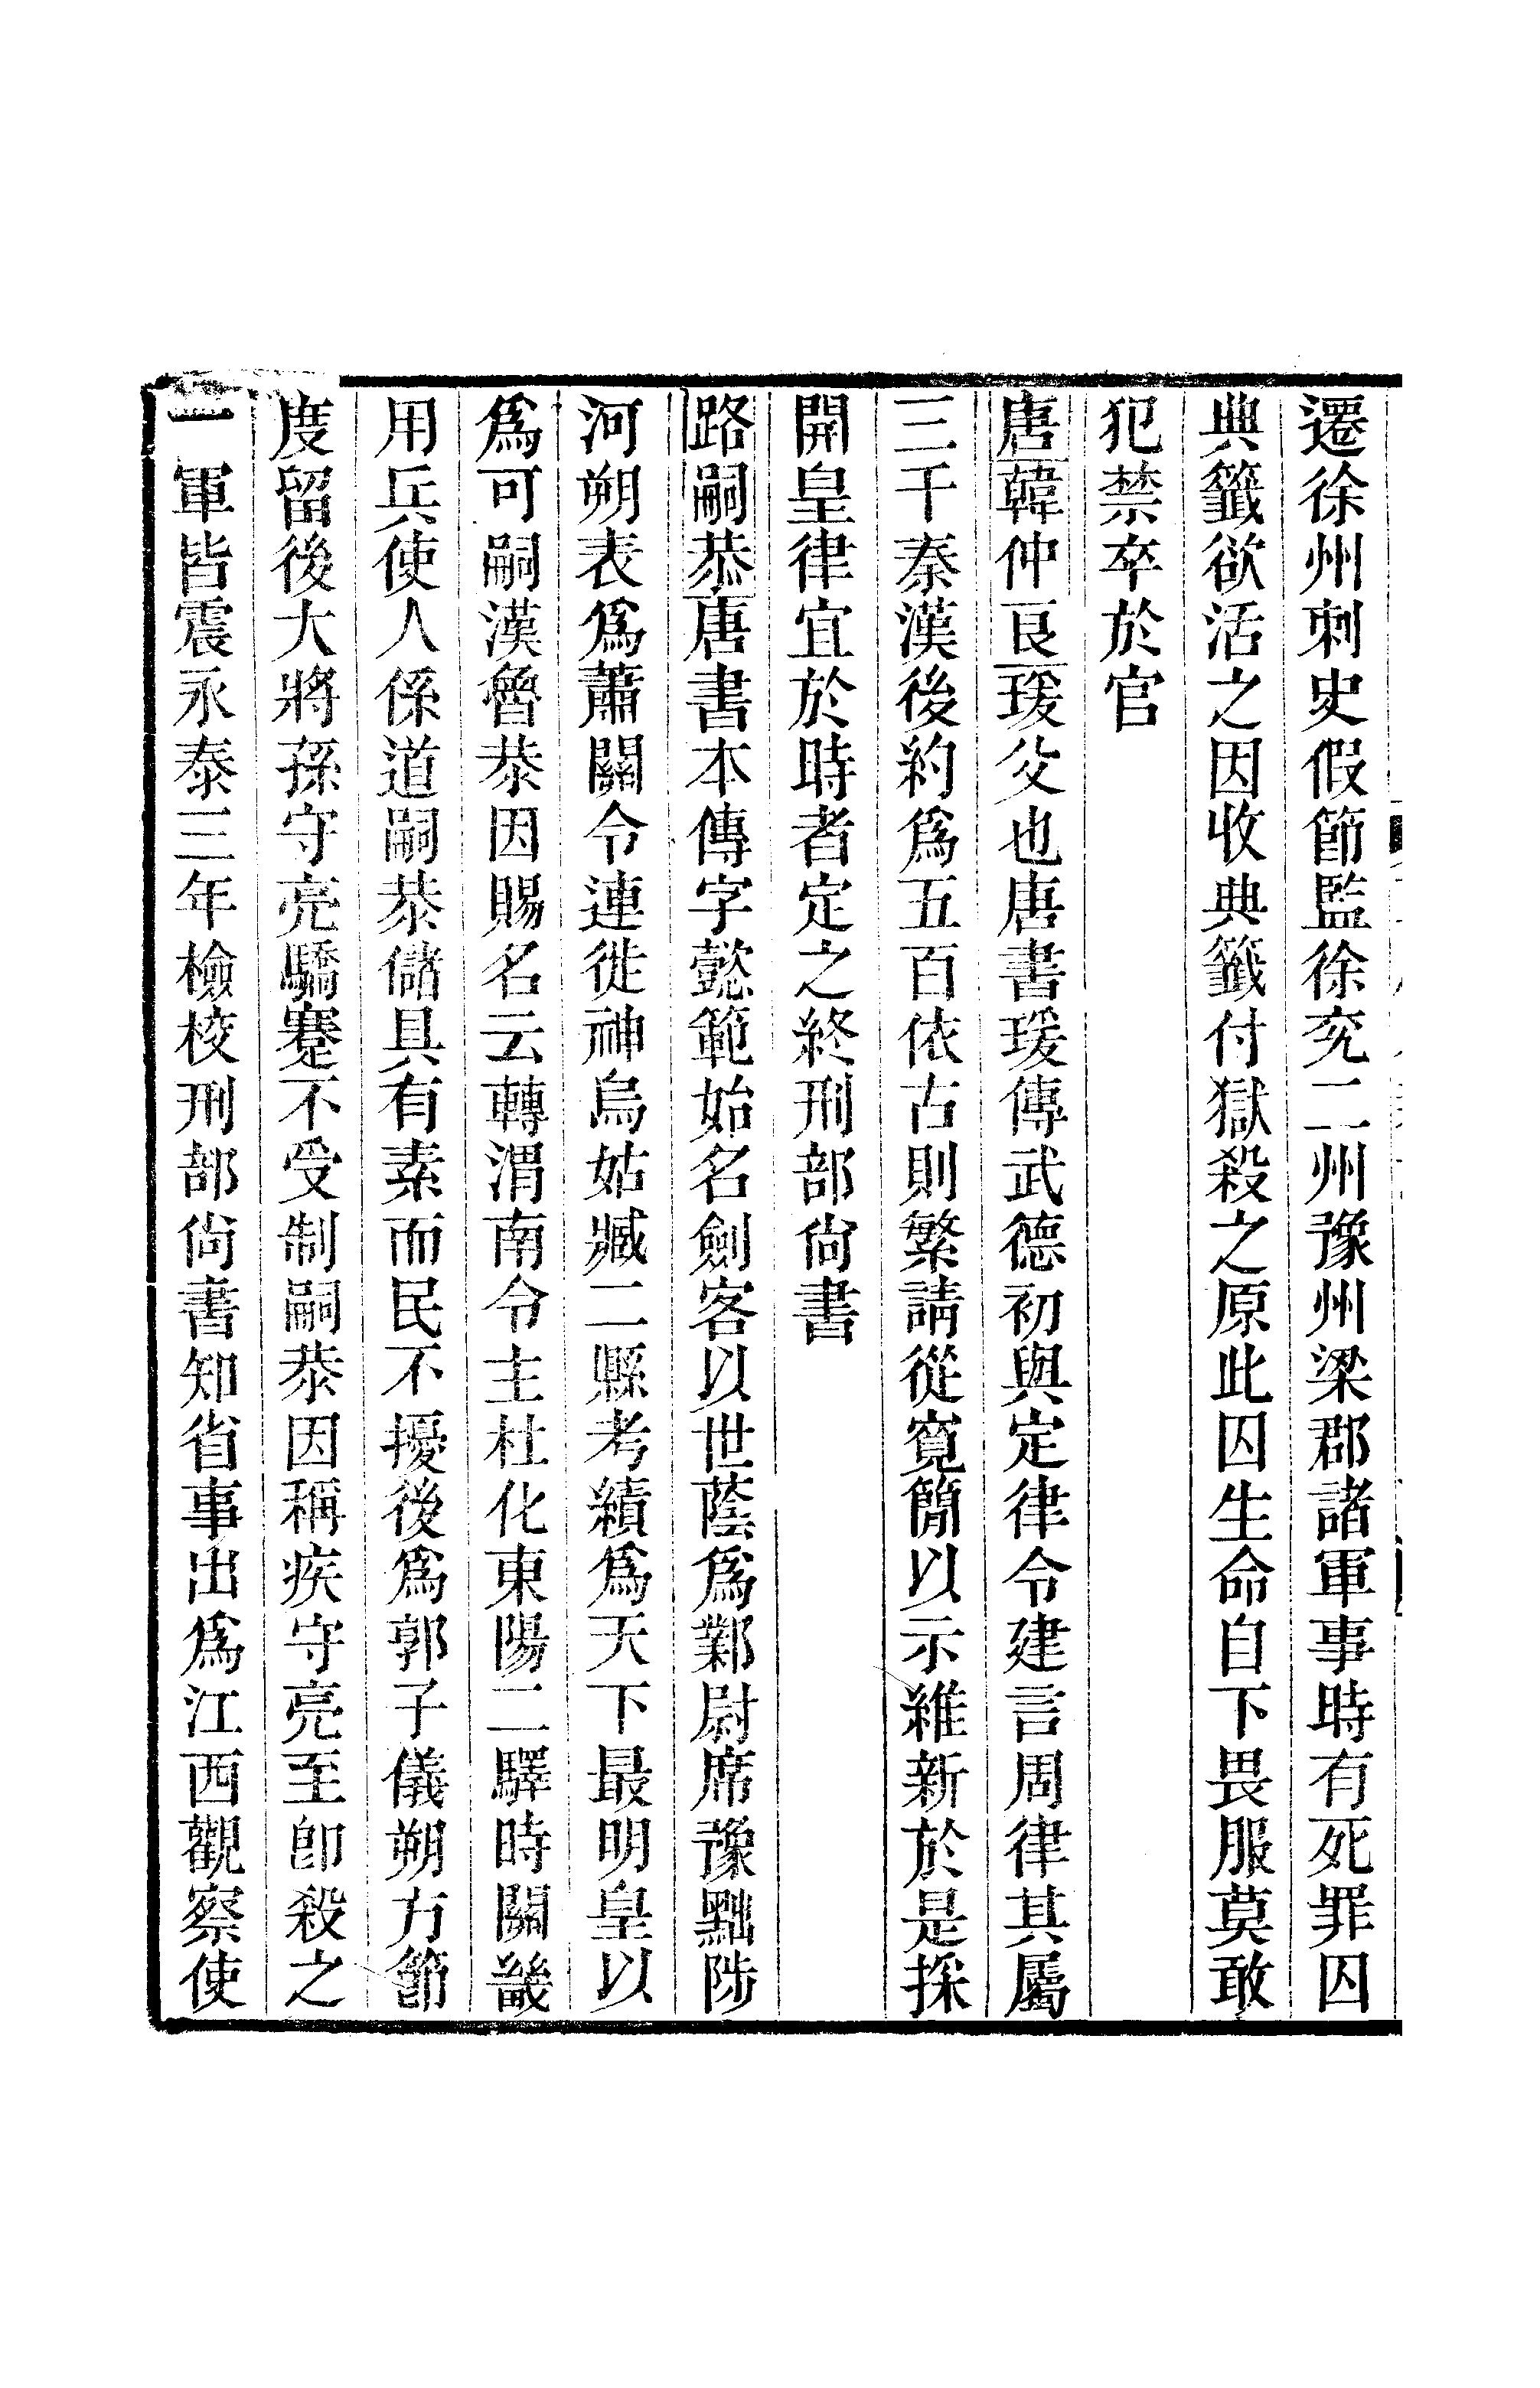 遷徐州刺史假節監徐兖二州豫州梁郡諸軍事時有死罪囚
典籖欲活之因收典籖付獄殺之原此囚生命自下畏服莫敢
犯禁卒於官
唐韓仲良瑗父也唐書瑗傳武德初與定律令建言周律其屬
三千秦漢後約爲五百依古則繁請從寛簡以示維新於是採
開皇律宜於時者定之終刑部尙書
路嗣恭唐書本傳字懿範始名劍客以世蔭爲鄴尉席豫黜陟
河朔表爲蕭關令連徙神烏姑臧二縣考績爲天下最明皇以
爲可嗣漢魯恭因賜名云轉渭南令主杜化東陽二驛時關畿
用兵使人係道嗣恭儲具有素而民不擾後爲郭子儀朔方節
度留後大將孫守亮驕蹇不受制嗣恭因稱疾守亮至卽殺之
一軍皆震永泰三年檢校刑部尙書知省事出爲江西觀察使